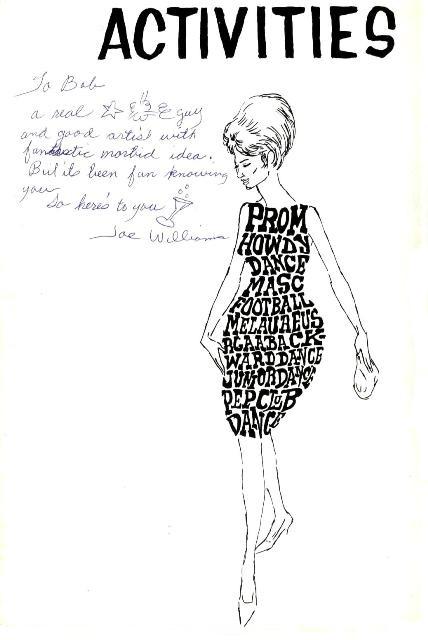 ACTIVITIES
To Bob
a real guy
and good artist with
fantastic morbid idea.
But its been fun knowing
you
So here's to you
Joe Williams
PROM
HOWDY
DANCE
MASC
FOOTBALL
BACK-
WARD DANCE
JUNIOR
PEP CLUB
DANCE